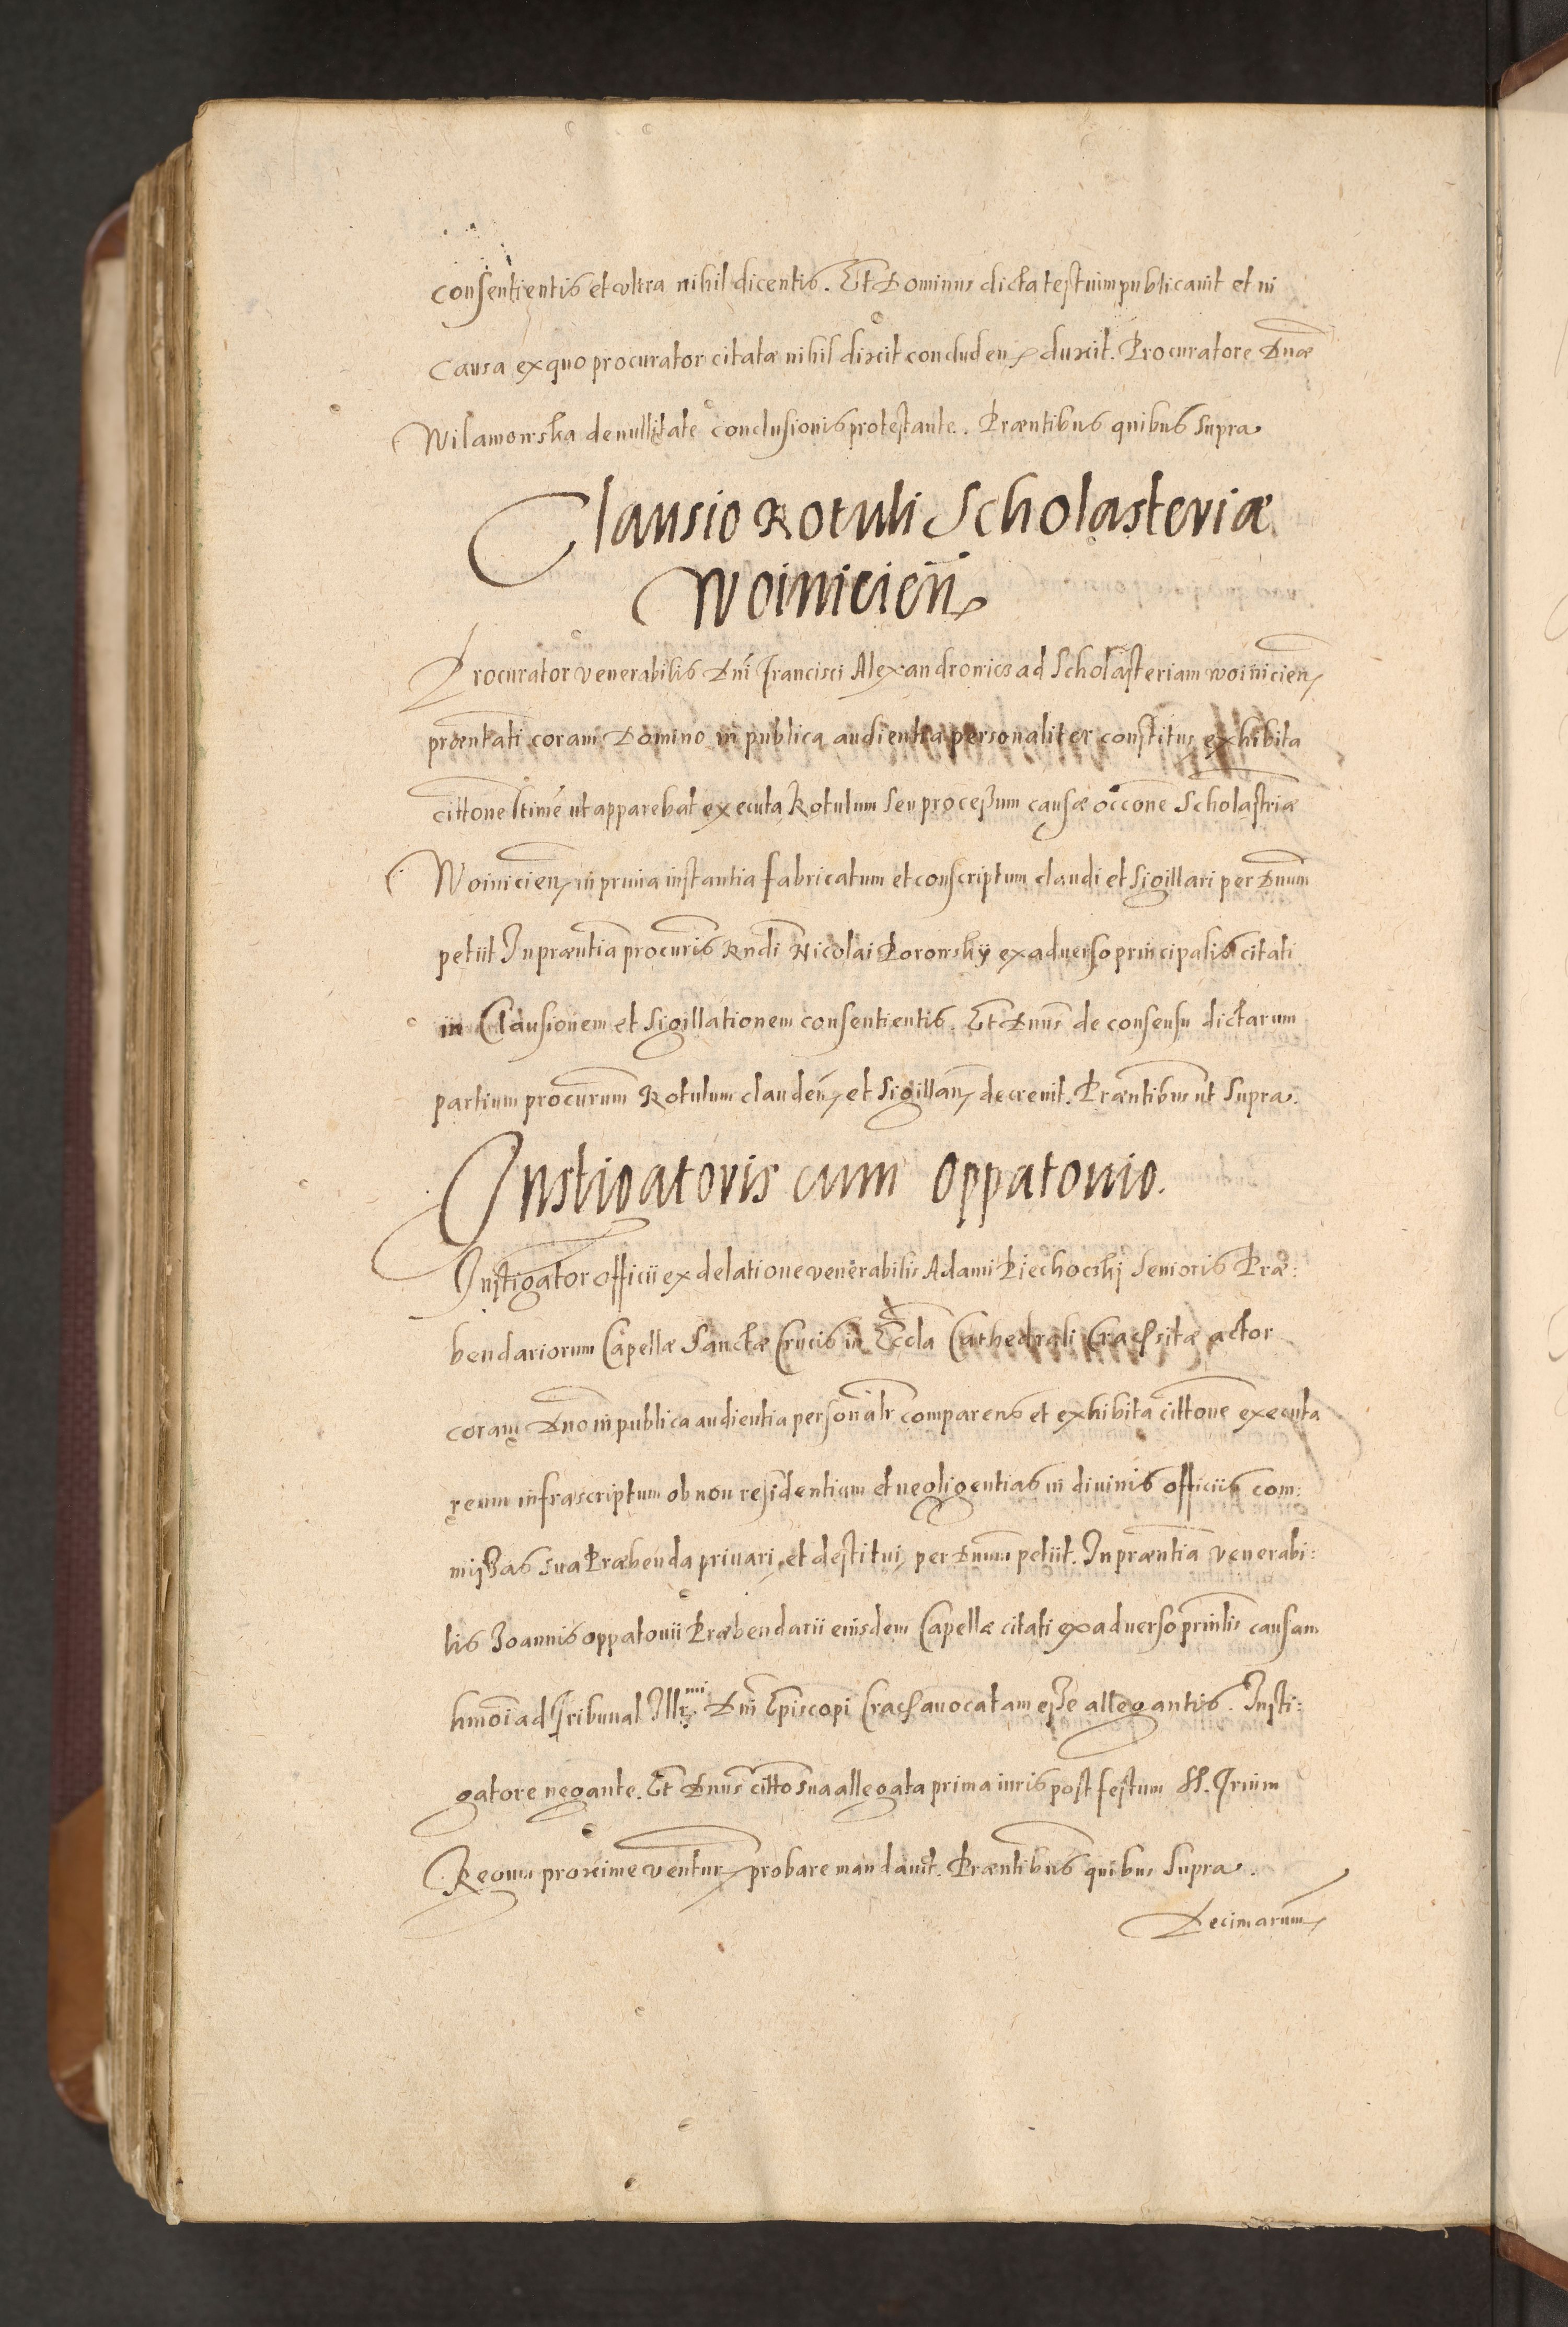 consentientis et vltra nihil dicentis. Et Dominus dicta testium publicauit et in
causa ex quo procurator citatæ nihil dixit concluden duxit. Procuratore Dnæ
Wilamowska de nullitate conclusionis protestante. Præntibus quibus supra
Clausio Rotuli Scholasteriæ
Woinicien
Procurator venerabilis Dni Francisci Alexandronics ad Scholasteriam woinicien
præntati coram Domino in publica audientia personaliter constitus exhibita
cittone ltime ut apparebat executa Rotulum seu processum causæ occone Scholastriæ
Woinicien in prima instantia fabricatum et conscriptum claudi et sigillari per Dnum
petiit In præntia procuris Rndi Nicolai Borowskÿ ex aduerso principalis citati
in Clausionem et Sigillationem consentientis. Et Dnus de consensu dictarum
partium procurum Rotulum clauden et Sigillan decreuit. Præntibus ut supra.
Instigatoris cum Oppatouio.
Instigator officii ex delatione venerabilis Adami Piechocskj Senioris Præ:
bendariorum Capellæ Sanctæ Crucis in Eccla Cathedrali Crac sitæ actor
coram Dno in publica audientia personalr comparens et exhibita cittone executa
reum infrascriptum ob non residentiam et negligentias in diuinis officiis com:
missas sua Præbenda priuari et destitui per Dnum petiit. In præntia venerabi:
lis Joannis oppatouii Præbendarii eiusdem Capellæ citati ex aduerso prinlis causam
hmoi ad Tribunal Illr mi Dni Episcopi Crac auocatam esse allegantis. Insti:
gatore negante. Et Dnus citto sua allegata prima iuris post festum SS. Trium
Regum proxime ventur probare mandauit. Præntibus quibus supra.
Decimarum